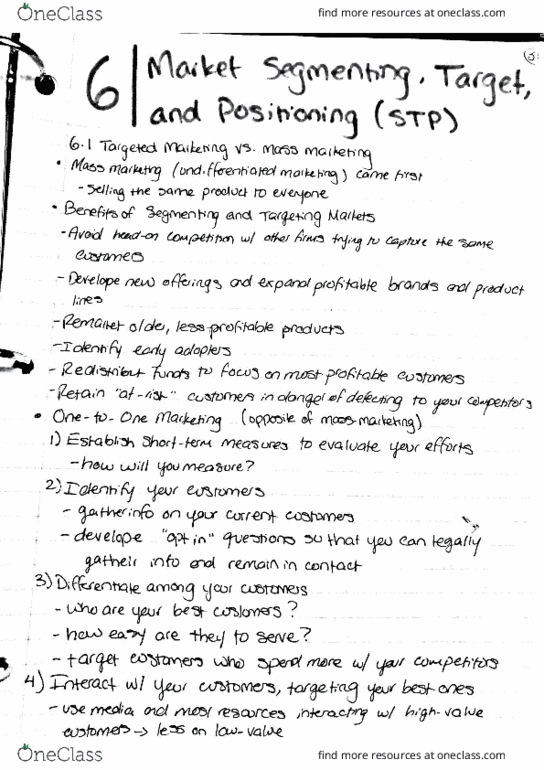 OneClass
find more resources at oneclass.com
6 Market Segmenting, Target,
and Positioning (STP)
6.1 Targeted Marketing vs. Mass marketing
• Mass marketing (undifferentiated marketing) came first
- Selling the same product to everyone
• Benefits of Segmenting and Targeting Markets
- Avoid head-on competition w/ other firms trying to capture the same
customers
- Develope new offerings and expand profitable brands and product
lines
- Remarket older, less-profitable products
- Identify early adopters
- Redistribut funds to focus on most profitable customers
- Retain "at-risk" customers in danger of defecting to your competitors
• One-to-One Marketing (opposite of mass-marketing)
1) Establish short-term measures to evaluate your efforts
- how will you measure?
2) Identify your customers
- gather info on your current customers
- develope "opt in" questions so that you can legally
gatheir info and remain in contact
3) Differentiate among your customers
- who are your best customers?
- how easy are they to serve?
- target customers who spend more w/ your competitors
4) Interact w/ your customers, targeting your best ones
- use media and most resources interacting w/ high-value
customers → less on low-value
OneClass
find more resources at oneclass.com